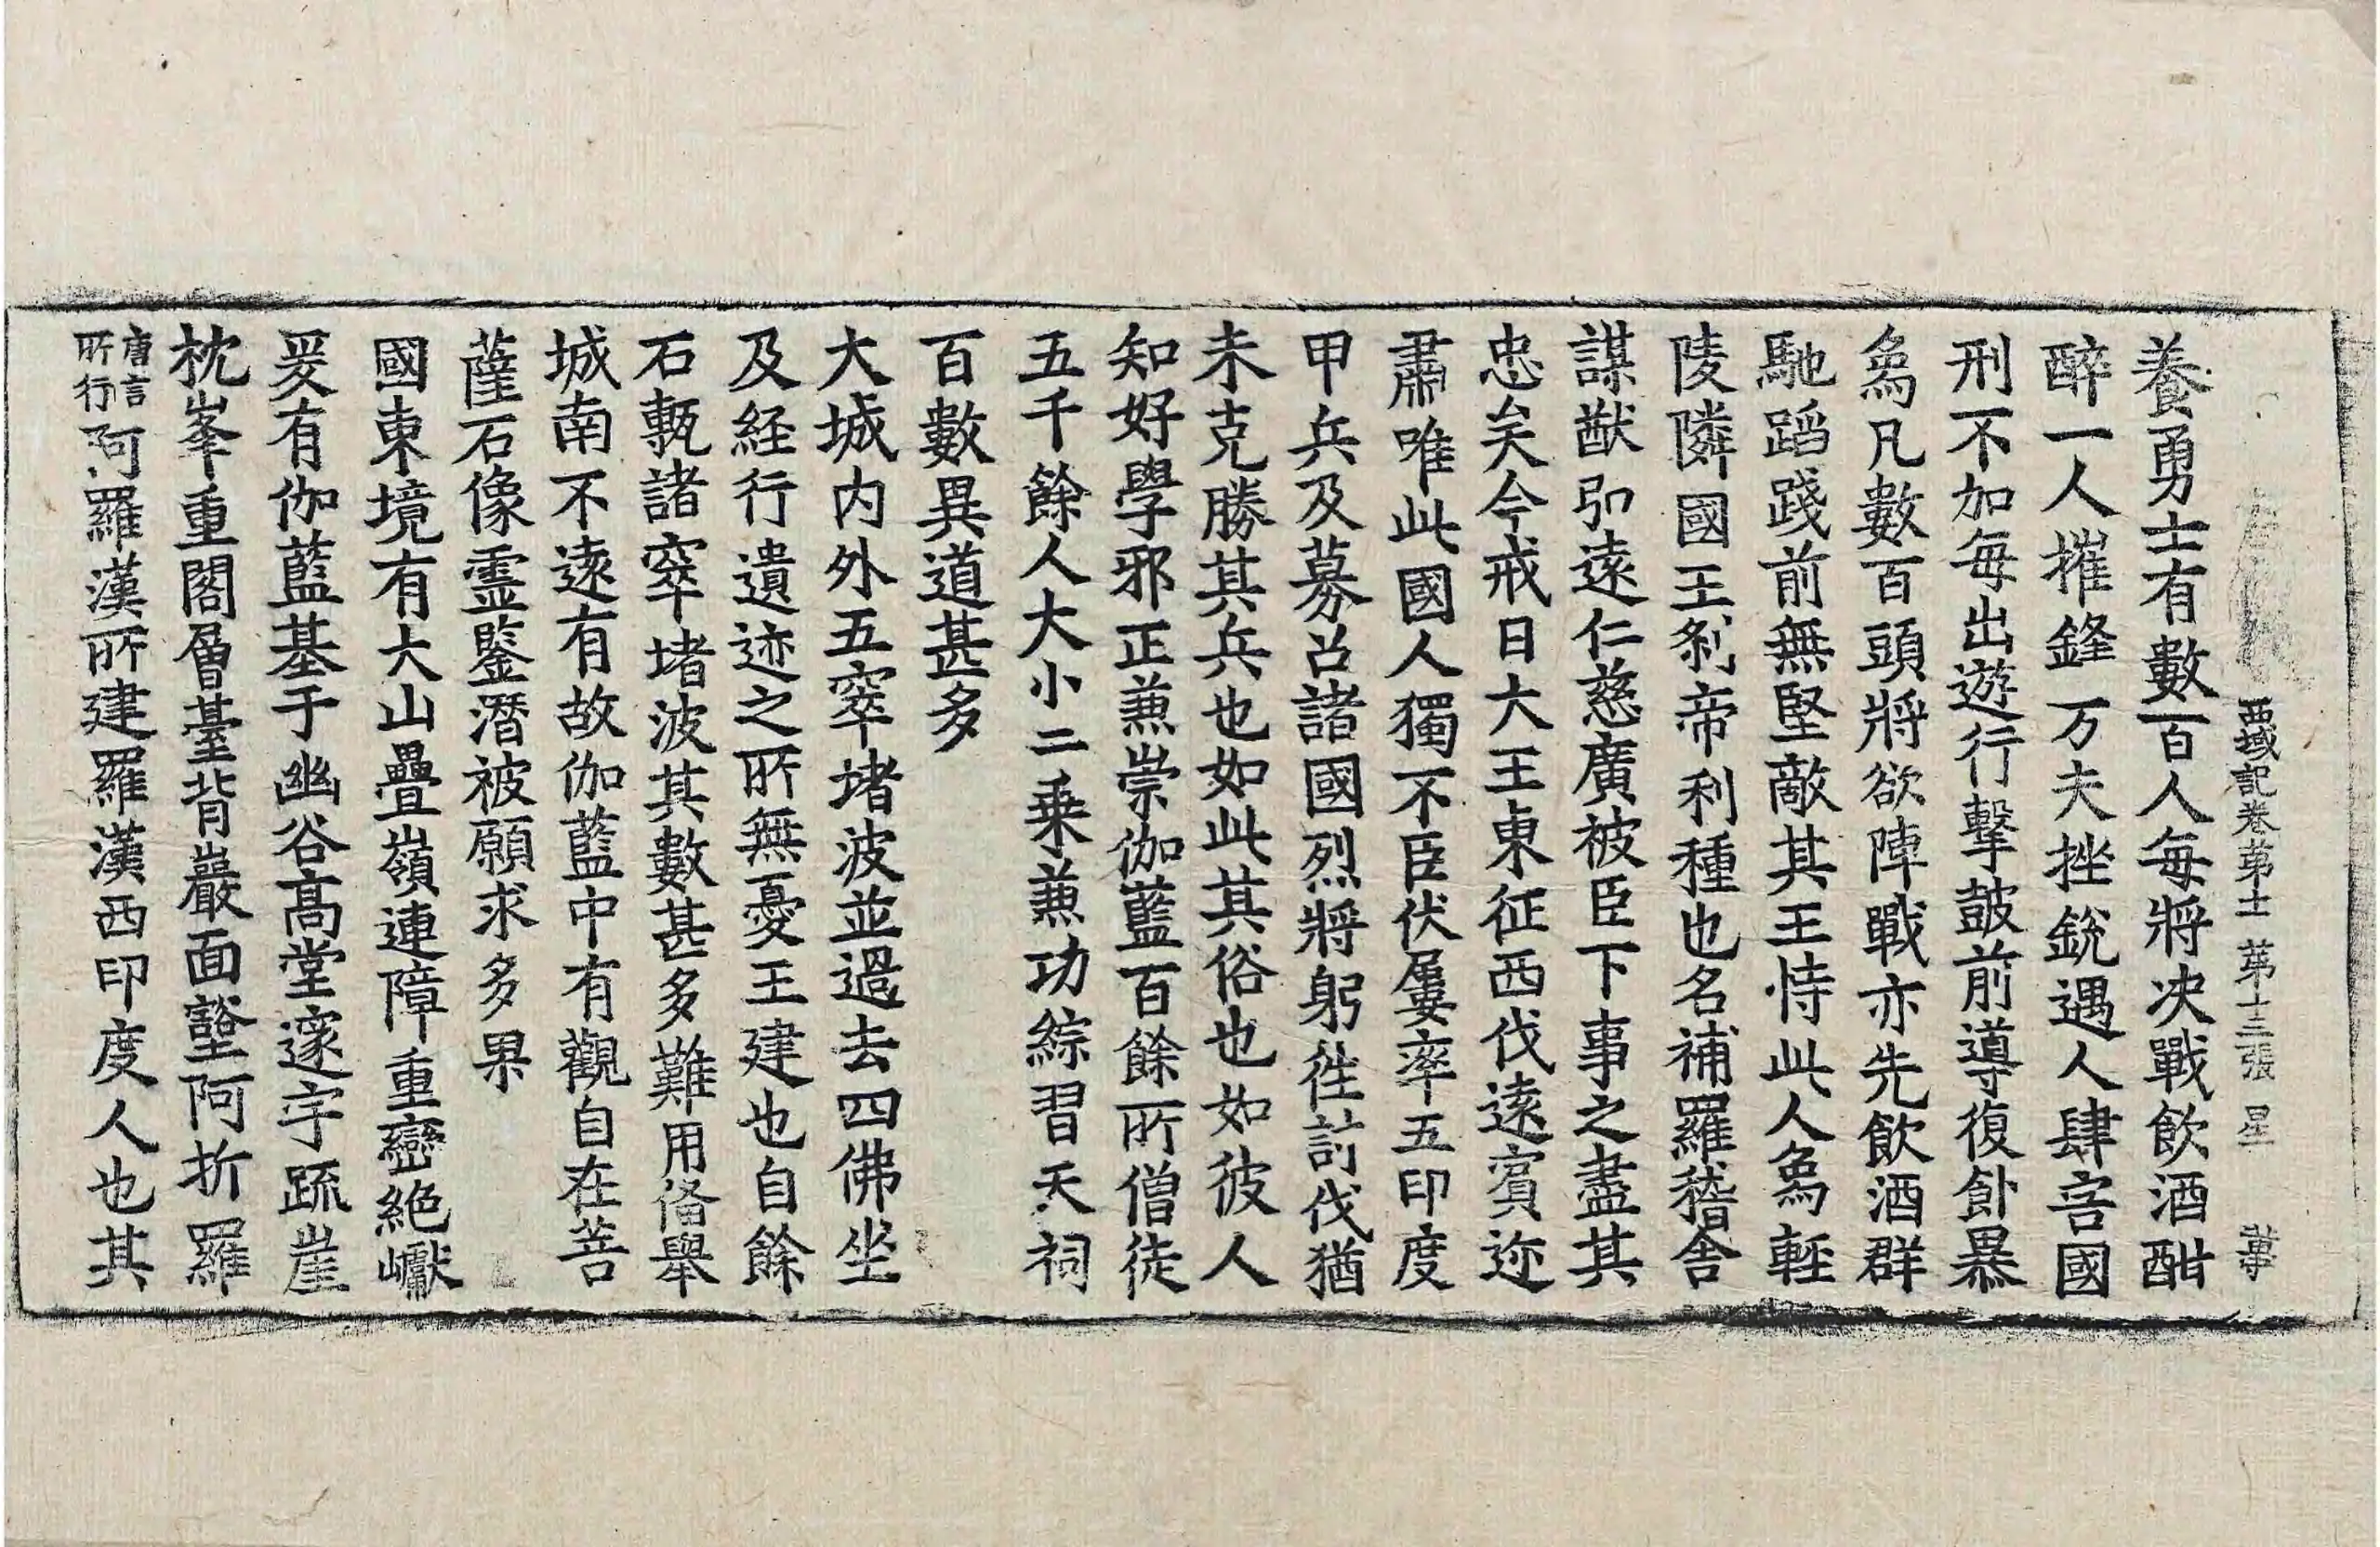 西域記卷苐十一 苐十三張 星
養勇士有數百人每將決戰飲酒酣
醉一人摧鋒万夫挫銳遇人肆害國
刑不加每出遊行擊鼓前導復飰暴
象凡數百頭將欲陣戰亦先飲酒群
馳蹈踐前無堅敵其王恃此人象輕
陵隣國王剎帝利種也名補羅稽舍
謀猷弘遠仁慈廣被臣下事之盡其
忠矣今戒日大王東征西伐遠賔迩
肅唯此國人獨不臣伏屢率五印度
甲兵及募召諸國烈將躬徃討伐猶
未克勝其兵也如此其俗也如彼人
知好學邪正兼崇伽藍百餘所僧徒
五千餘人大小二乗兼功綜習天祠
百數異道甚多
大城內外五窣堵波並過去四佛坐
及経行遺迹之所無憂王建也自餘
石甎諸窣堵波其數甚多難用俻舉
城南不遠有故伽藍中有觀自在菩
薩石像霊鑒潛被願求多果
國東境有大山疊嶺連障重巒絶巘
爰有伽藍基于幽谷髙堂邃宇疏崖
枕峯重閣層臺背巖面壑阿折羅
唐言所行阿羅漢所建羅漢西印度人也其